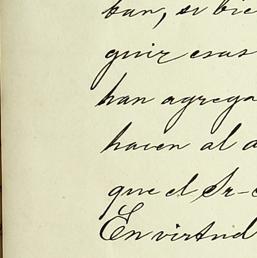 ban, si bie
guir esas
han agrega
hacen al a
que el Sr-
En virtud